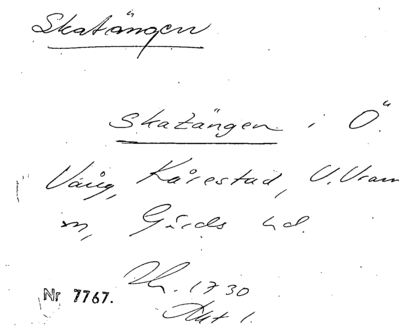 Skatängen
Skatängen i Ö.
Vång, Kårestad, V. Vram
m, Gärds hd.
1730
Akt 1.
Nr 7767.